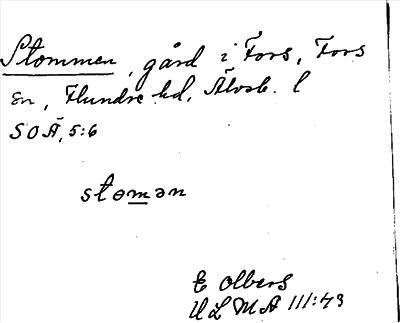 Stommen, gård i Fors, Fors
sn, Flundre hd, Älvsb. l
SOÄ, 5:6
stomən
E Olbers
ULMA 111:43